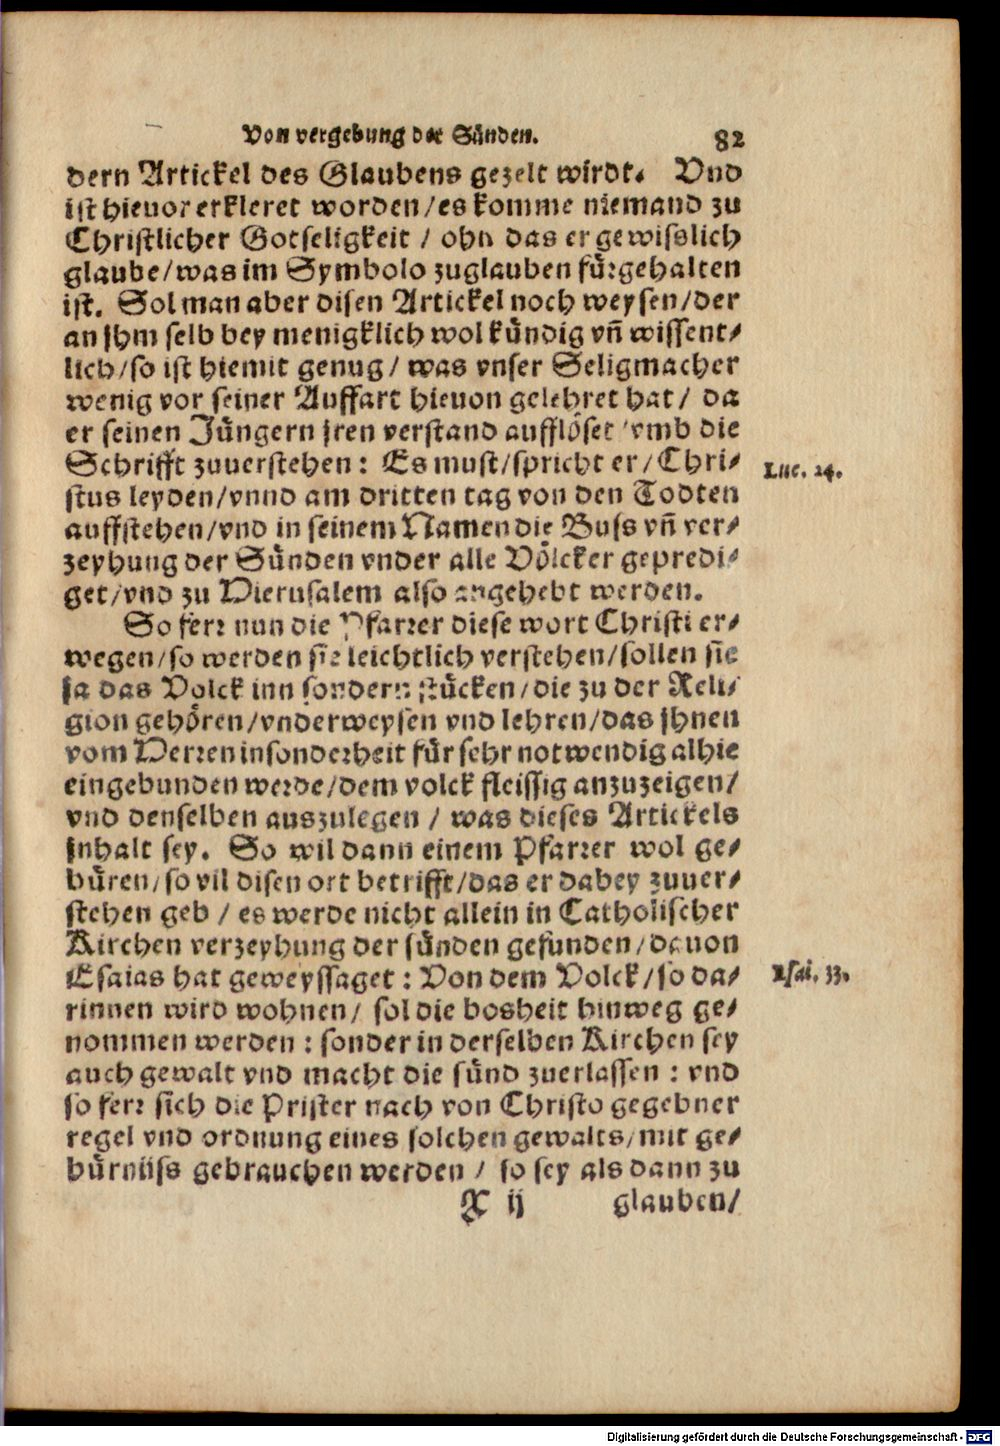 Von vergebung der Sünden. 82
dern Artickel des Glaubens gezelt wirdt. Vnd
ist hieuor erkleret worden/es komme niemand zu
Christlicher Gotseligkeit / ohn das er gewisslich
glaube/was im Symbolo zuglauben fürgehalten
ist. Sol man aber disen Artickel noch weysen/der
an jhm selb bey menigklich wol kündig vñ wissent-
lich/so ist hiemit genug/ was vnser Seligmacher
wenig vor seiner Auffart hieuon gelehret hat/ da
er seinen Jüngern jren verstand aufflöset/vmb die
Schrifft zuuerstehen: Es must/spricht er/Chri-
stus leyden/vnnd am dritten tag von den Todten
auffstehen/vnd in seinem Namen die Buss vñ ver-
zeyhung der Sünden vnder alle Völcker geprediget-
get/vnd zu Hierusalem also angehebt werden.
Luc. 24.
So ferr nun die Pfarrer diese wort Christi er-
wegen/so werden sie leichtlich verstehen/sollen sie
ja das Volck inn sondern stücken/die zu der Reli-
gion gehören/vnderweysen vnd lehren/das jhnen
vom Herren insonderheit für sehr notwendig alhie
eingebunden werde/dem volck fleissig anzuzeigen/
vnd denselben auszulegen / was dieses Artickels
jnhalt sey. So wil dann einem Pfarrer wol ge-
büren/so vil disen ort betrifft/das er dabey zuuer-
stehen geb / es werde nicht allein in Catholischer
Kirchen verzeyhung der sünden gefunden/dauon
Esaias hat geweyssaget: Von dem Volck/so da-
rinnen wird wohnen/ sol die bosheit hinweg ge-
nommen werden: sonder in derselben Kirchen sey
auch gewalt vnd macht die sünd zuerlassen: vnd
so ferr sich die Prister nach von Christo gegebner
regel vnd ordnung eines solchen gewalts/mit ge-
bürnüss gebrauchen werden / so sey als dann zu
Esai. 33.
X ij glauben/
Digitalisierung gefördert durch die Deutsche Forschungsgemeinschaft - DFG